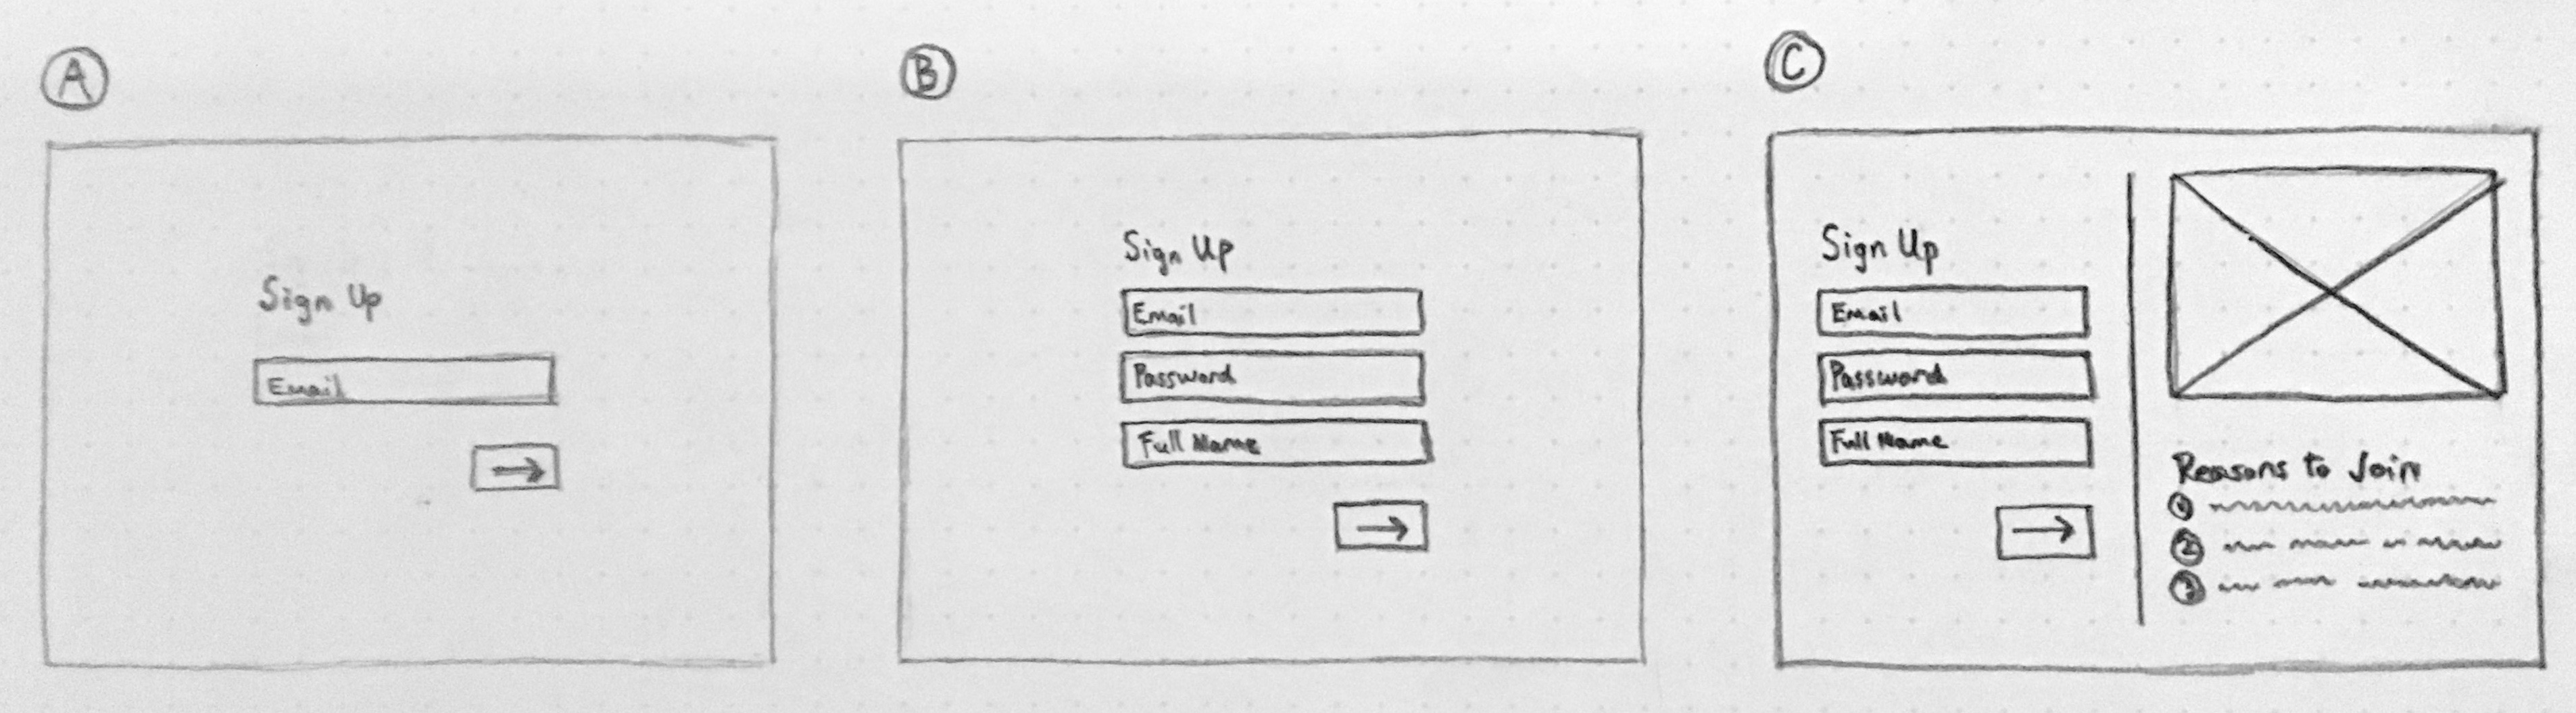 A
Sign Up
Email
→
B
Sign Up
Email
Password
Full Name
→
C
Sign Up
Email
Password
Full Name
→
Reasons to Join
1
2
3